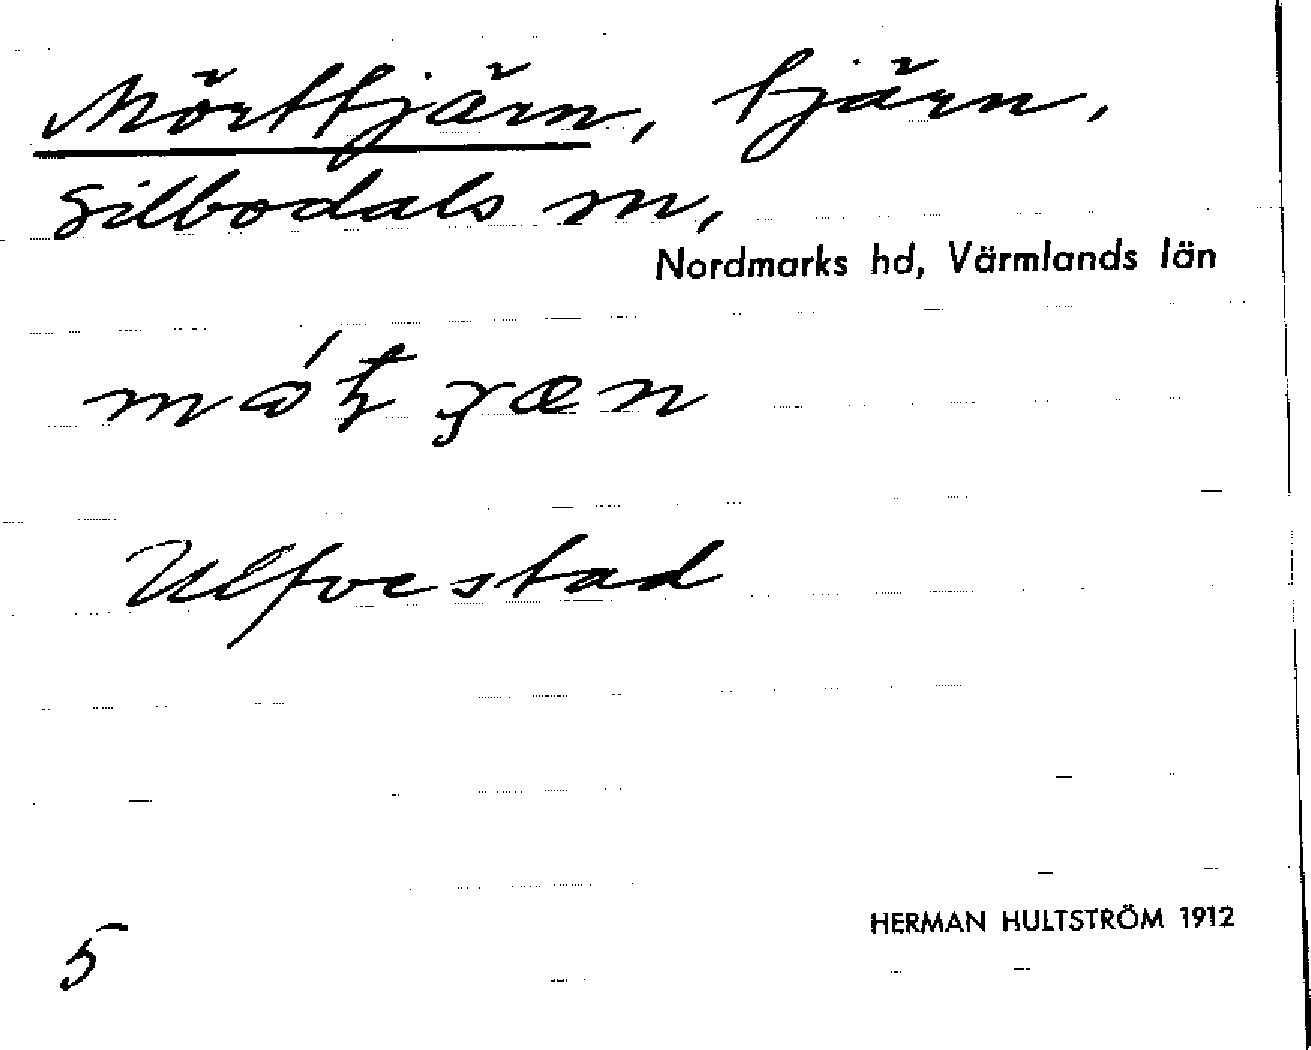 Mörttjärn, tjärn,
Silbodals sn,
Nordmarks hd, Värmlands län
Ulfvestad
HERMAN HULTSTRÖM 1912
5